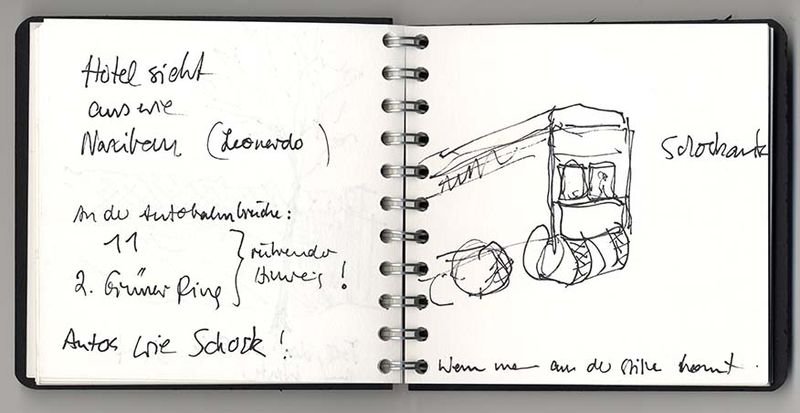 Hotel sieht
aus wie
Nazibau (Leonardo)
An der Autobahnbrücke:
11
2. Grüner Ring
rührender
Hinweis!
Autos wie Schock!
Wenn man aus der Stille kommt.